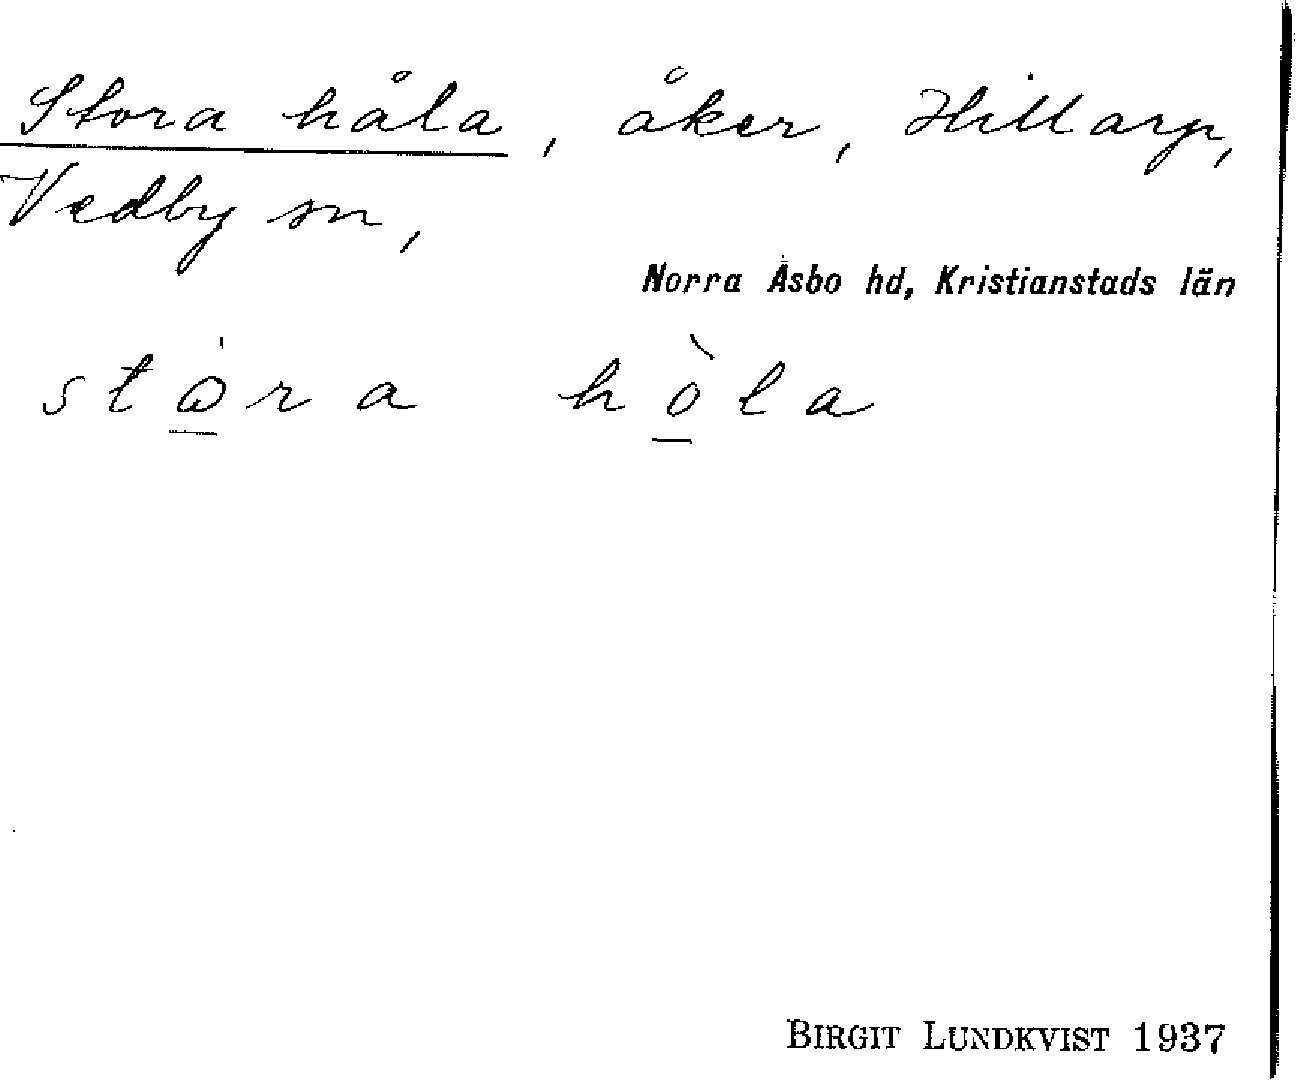 Stora håla, åker, Hillarp,
Vedby sn,
Norra Åsbo hd, Kristianstads län
stora hòla
BIRGIT LUNDKVIST 1937